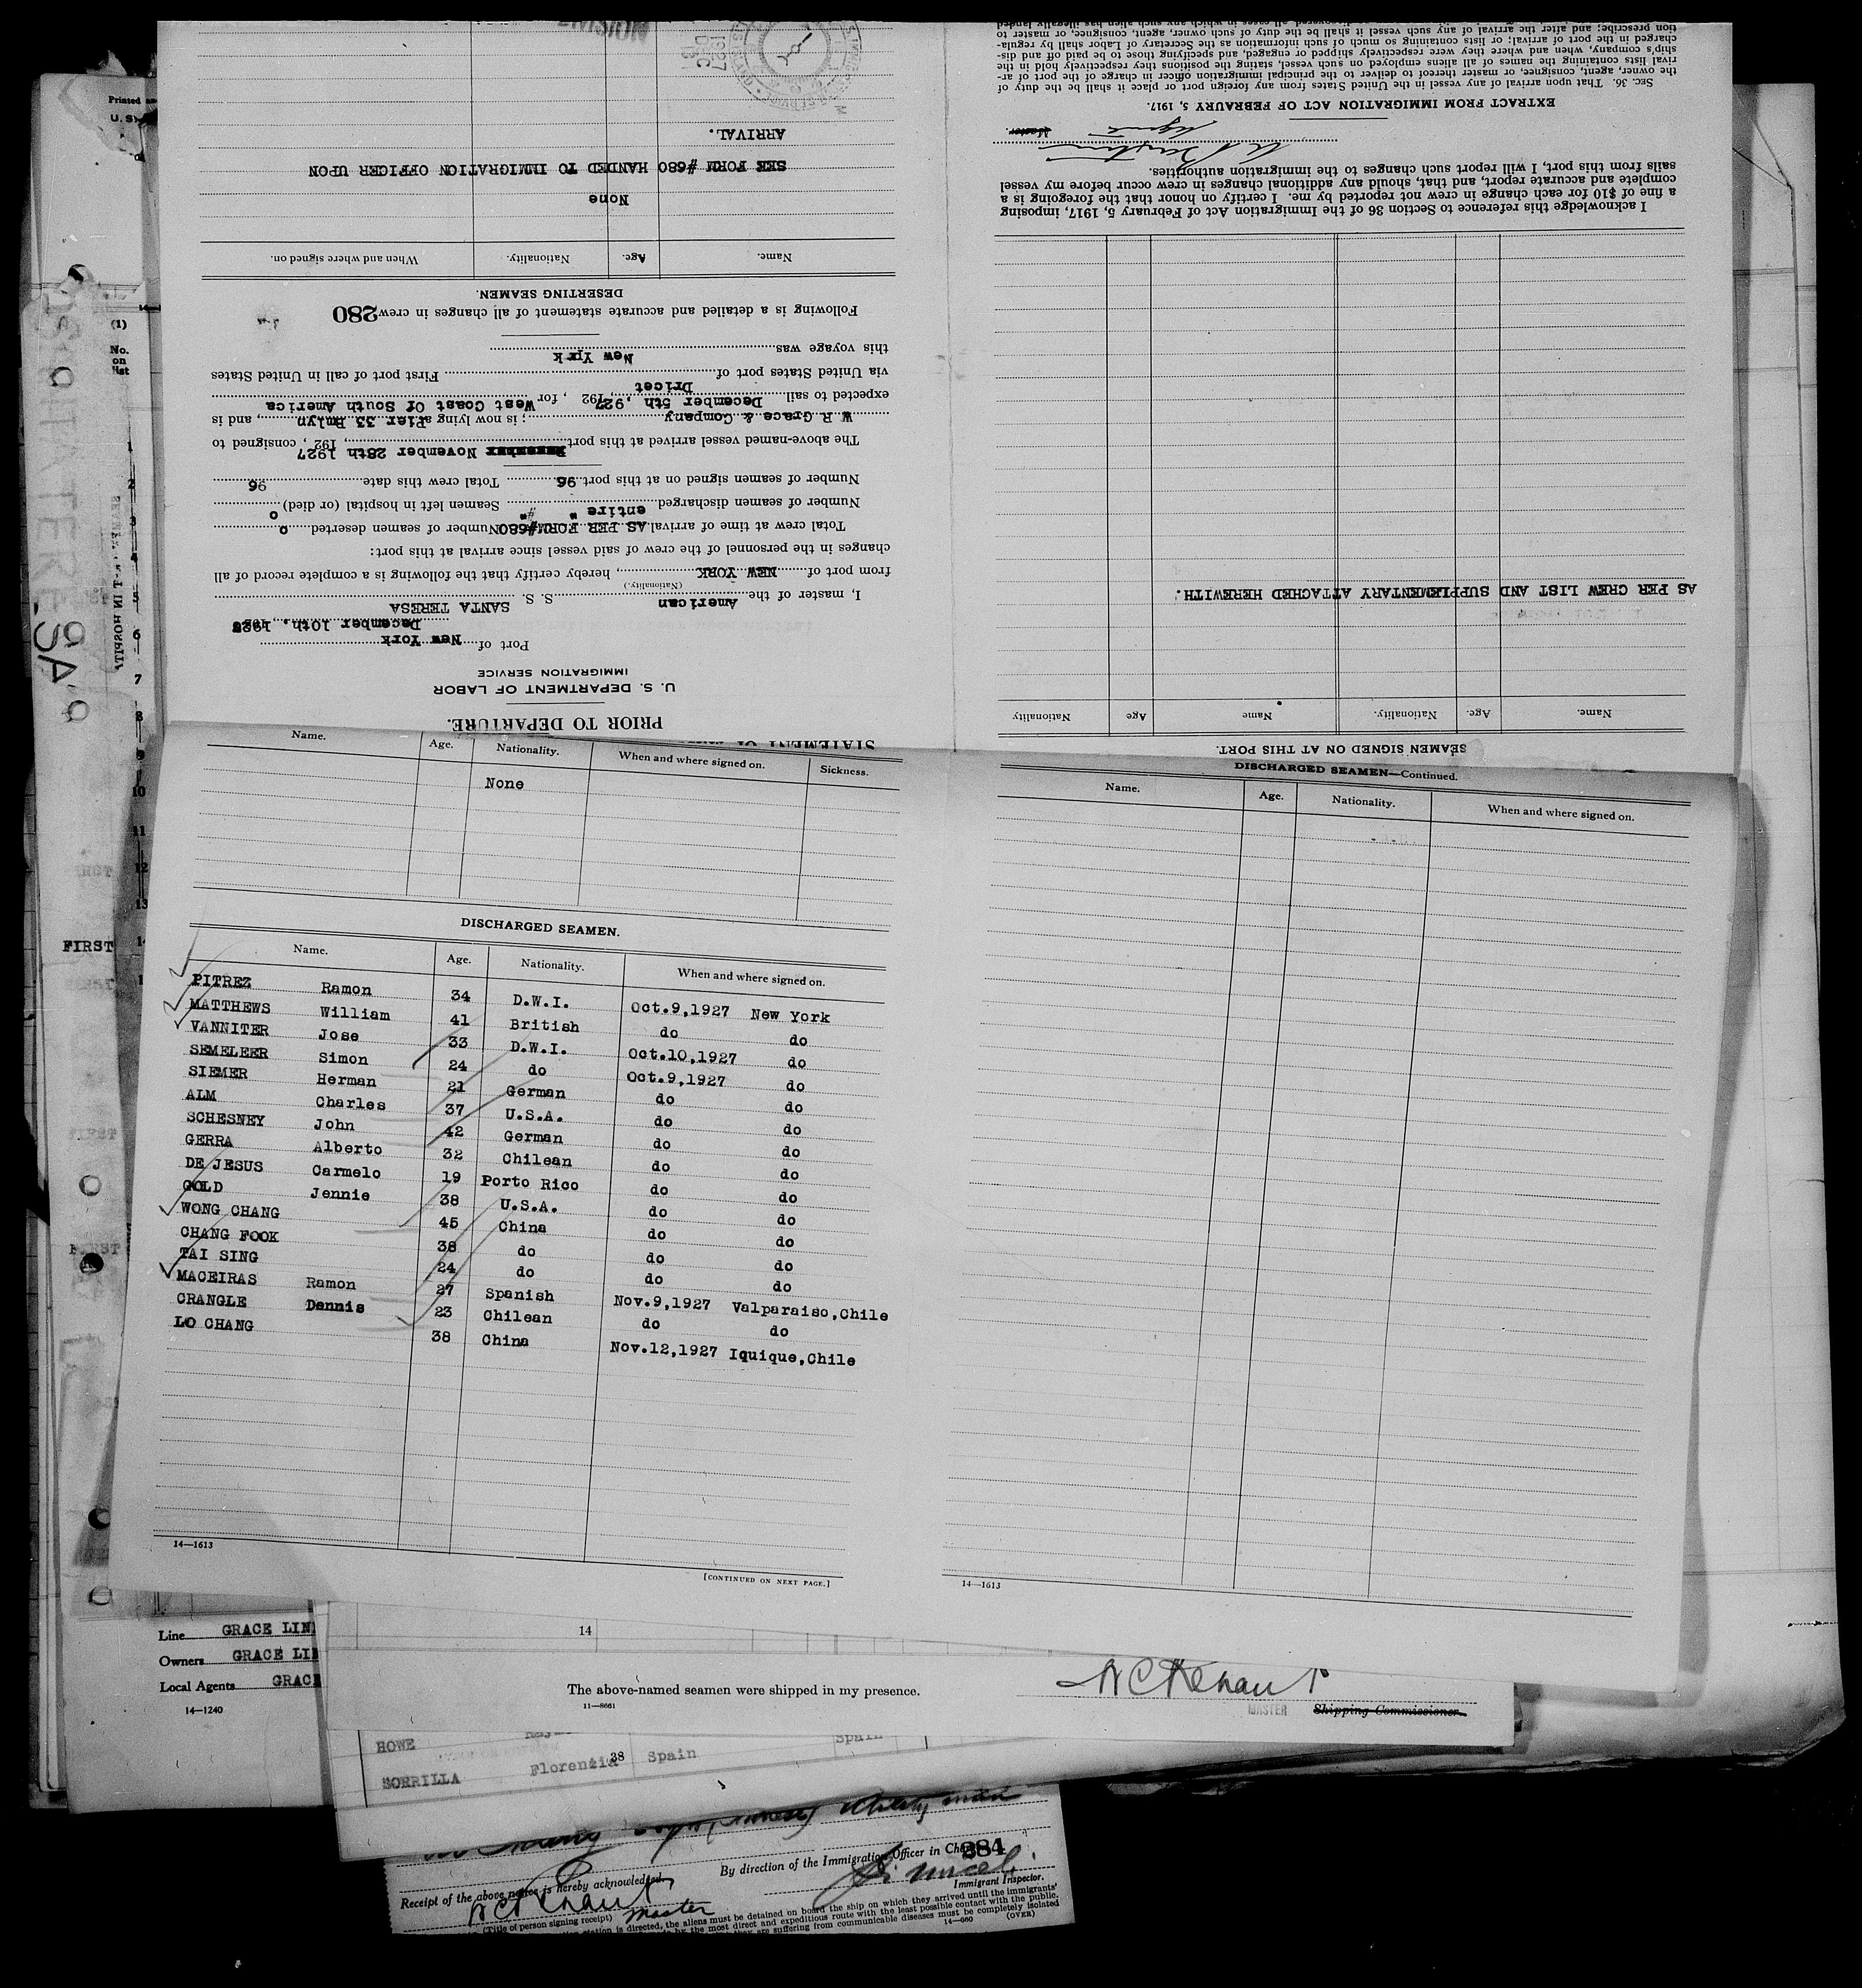 STATEMENT OF
PRIOR TO DEPARTURE.
U. S. DEPARTMENT OF LABOR
IMMIGRATION SERVICE
Port of New York
December 10th., 1927
I, master of the American S. S. SANTA TERESA
(Nationality.)
from port of NEW YORK, hereby certify that the following is a complete record of all
changes in the personnel of the crew of said vessel since arrival at this port:
Total crew at time of arrival AS PER FORM#680 Number of seamen deserted 0
Number of seamen discharged entire " #" Seamen left in hospital (or died) 0
Number of seamen signed on at this port 96 Total crew this date 96
The above-named vessel arrived at this port November 28th 1927, 192 , consigned to
W R Grace & Company ; is now lying at Pier 33 Bmlyn, and is
expected to sail December 5th, 927, 192 , for West Coast Of South America
via United States port of Dricet First port of call in United States
this voyage was New Yirk
Following is a detailed and accurate statement of all changes in crew 280
DESERTING SEAMEN.
Name. Age. Nationality. When and where signed on.
None
SEE FORM #680 HANDED TO IMMIGRATION OFFICER UPON
ARRIVAL.
1927
DEC
SEAMEN SIGNED ON AT THIS PORT.
Name. Age. Nationality. Name Age Nationality
AS PER CREW LIST AND SUPPLEMENTARY ATTACHED HEREWITH.
I acknowledge this reference to Section 36 of the Immigration Act of February 5, 1917, imposing
a fine of $10 for each change in crew not reported by me. I certify on honor that the foregoing is a
complete and accurate report, and that, should any additional changes in crew occur before my vessel
sails from this port, I will report such changes to the immigration authorities.
Agent Master.
EXTRACT FROM IMMIGRATION ACT OF FEBRAURY 5, 1917.
Sec. 36. That upon arrival of any vessel in the United States from any foreign port or place it shall be the duty of
the owner, agent, consignee, or master thereof to deliver to the principal immigration officer in charge of the port of ar-
rival lists containing the names of all aliens employed on such vessel, stating the positions they respectively hold in the
ship's company, when and where they were respectively shipped or engaged, and specifying those to be paid off and dis-
charged in the port of arrival; or lists containing so much of such information as the Secretary of Labor shall by regula-
tion prescribe; and after the arrival of any such vessel it shall be the duty of such owner, agent, consignee, or master to
Name. Age. Nationality. When and where signed on. Sickness.
None
DISCHARGED SEAMEN.
Name. Age. Nationality. When and where signed on.
PITREZ Ramon 34 D.W.I. Oct.9,1927 New York
MATTHEWS William 41 British do do
VANNITER Jose 33 D.W.I. Oct.10,1927 do
SEMELEER Simon 24 do Oct.9,1927 do
SIEMER Herman 21 German do do
ALM Charles 37 U.S.A. do do
SCHESNEY John 42 German do do
GERRA Alberto 32 Chilean do do
DE JESUS Carmelo 19 Porto Rico do do
GOLD Jennie 38 U.S.A. do do
WONG CHANG 45 China do do
CHANG FOOK 38 do do do
TAI SING 24 do do do
MACEIRAS Ramon 27 Spanish Nov.9,1927 Valparaiso,Chile
CRANGLE Dennis 23 Chilean do do
LO CHANG 38 China Nov.12,1927 Iquique,Chile
14—1613
[CONTINUED ON NEXT PAGE.]
DISCHARGED SEAMEN—Continued.
Name. Age. Nationality. When and where signed on.
14—1613
Printed
U. S.
(1)
No.
on
list
1
2
3
4
5
6
7
8
9
10
11
12
13
FIRST
Line GRACE LIN
Owners GRACE LI
Local Agents GRACE
14—1240
14
The above-named seamen were shipped in my presence.
11—8661
MASTER Shipping Commissioner.
HOWE
Spain
SORRILLA Florenzia 38 Spain
384
By direction of the Immigration Officer in Charge
Immigrant Inspector.
Receipt of the above notice is hereby acknowledged
Master
(Title of person signing receipt)
station is directed, the aliens must be detained on board the ship on which they arrived until the immigrants'
by the most direct and expeditious route with the least possible contact with the public.
are suffering from communicable diseases must be completely isolated
14—660 (OVER)